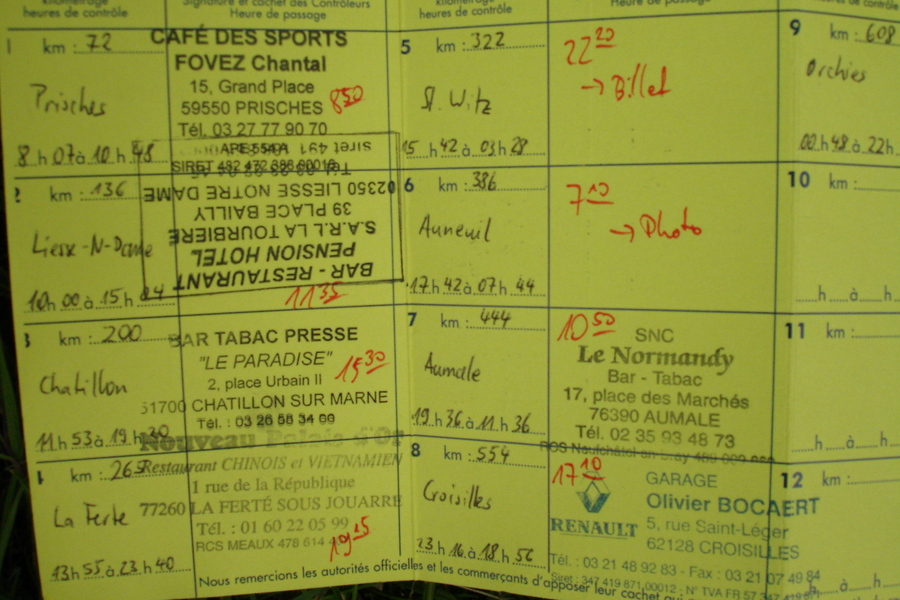 kilométrage
heures de contrôle
Signature et cachet des Contrôleurs
Heure de passage
1 km : 72
Prisches
8 h 07 à 10 h 48
CAFÉ DES SPORTS
FOVEZ Chantal
15, Grand Place
59550 PRISCHES
Tél. 03 27 77 90 70
850
2 km : 136
Liesse-N-Dame
10 h 00 à 15 h 04
BAR - RESTAURANT
PENSION HOTEL
S.A.R.L LA TOURBIERE
39 PLACE BAILLY
02350 LIESSE NOTRE DAME
1135
3 km : 200
Chatillon
11 h 53 à 19 h 20
BAR TABAC PRESSE
"LE PARADISE"
2, place Urbain II
51700 CHATILLON SUR MARNE
Tél. : 03 26 58 34 00
1530
4 km : 265
La Ferte
13 h 55 à 23 h 40
Nouveau Palais d'Or
Restaurant CHINOIS et VIETNAMIEN
1 rue de la République
77260 LA FERTÉ SOUS JOUARRE
Tél. : 01 60 22 05 99
RCS MEAUX 478 614
1915
kilométrage
heures de contrôle
Heure de passage
5 km : 322
St. Witz
15 h 42 à 03 h 28
2220
→ Billet
6 km : 386
Auneuil
17 h 42 à 07 h 44
710
→ Photo
7 km : 444
Aumale
19 h 36 à 11 h 36
1050
SNC
Le Normandy
Bar - Tabac
17, place des Marchés
76390 AUMALE
Tél. 02 35 93 48 73
8 km : 554
Croisilles
23 h 16 à 18 h 56
1710
RENAULT
GARAGE
Olivier BOCAERT
5, rue Saint-Léger
62128 CROISILLES
Tél. : 03 21 48 92 83 - Fax : 03 21 07 49 84
Siret : 347 419 871 00012 - N° TVA FR 57 347 419 871
heures de contrôle
9 km : 608
Orchies
00 h 48 à 22 h
10 km :
h à h
11 km :
h à h
12 km :
h à h
Nous remercions les autorités officielles et les commerçants d'apposer leur cachet